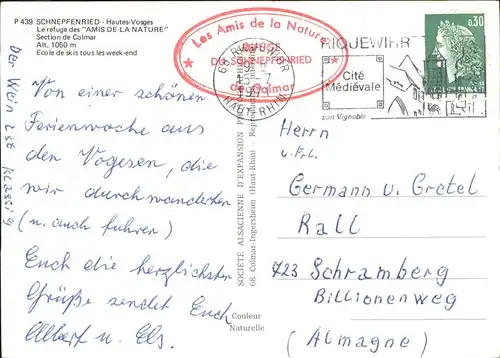 P 439 SCHNEPFENRIED - Hautes-Vosges
Le refuge des "AMIS DE LA NATURE"
Section de Colmar
Alt. 1050 m
Ecole de skis tous les week-end
Les Amis de la Nature
REFUGE
DU SCHNEPFENRIED
de Colmar
68 RIQUEWIHR
15-7
HAUT-RHIN
RIQUEWIHR
Cité
Médiévale
son Vignoble
0,30
Der Wein ist klassig
Von einer schönen
Ferienwoche aus
den Vogesen, die
wir durchwanderten
(u. auch fuhren)
Euch die herzlichsten
Grüße sendet Euch
Albert u. Els.
SOCIÉTÉ ALSACIENNE D'EXPANSION
68 Colmar-Ingersheim (Haut-Rhin) - Reproduction
Couleur
Naturelle
Herrn
u. Frl.
Germann u. Gretel
Rall
723 Schramberg
Billionenweg
(Almagne)